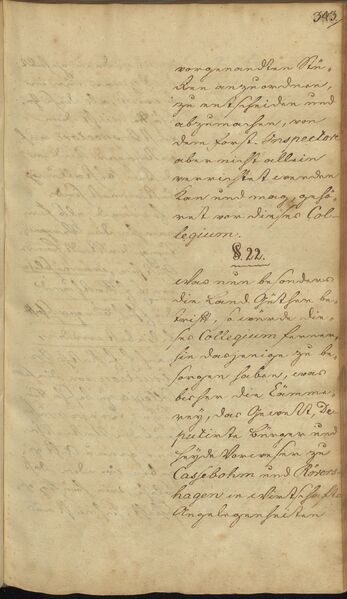 343
vorgenandten Stü-
cken anzuordnen,
zu entscheiden und
abzumachen, von
dem Forst-Inspector
aber nicht allein
verrichtet werden
kan und mag, gehö-
ret vor dieses Col-
legium.
§. 22.
Was nun besonders
die Land Güther be-
trift, so würde die-
ses Collegium ferner-
hin dasjenige zu be-
sorgen haben, was
bisher die Cämme-
rey, das Gewett, De-
putirte Bürger und
Heyde Vorweser zu
Cassebohm und Rövers-
hagen in Wirtschafts-
Angelegenheiten